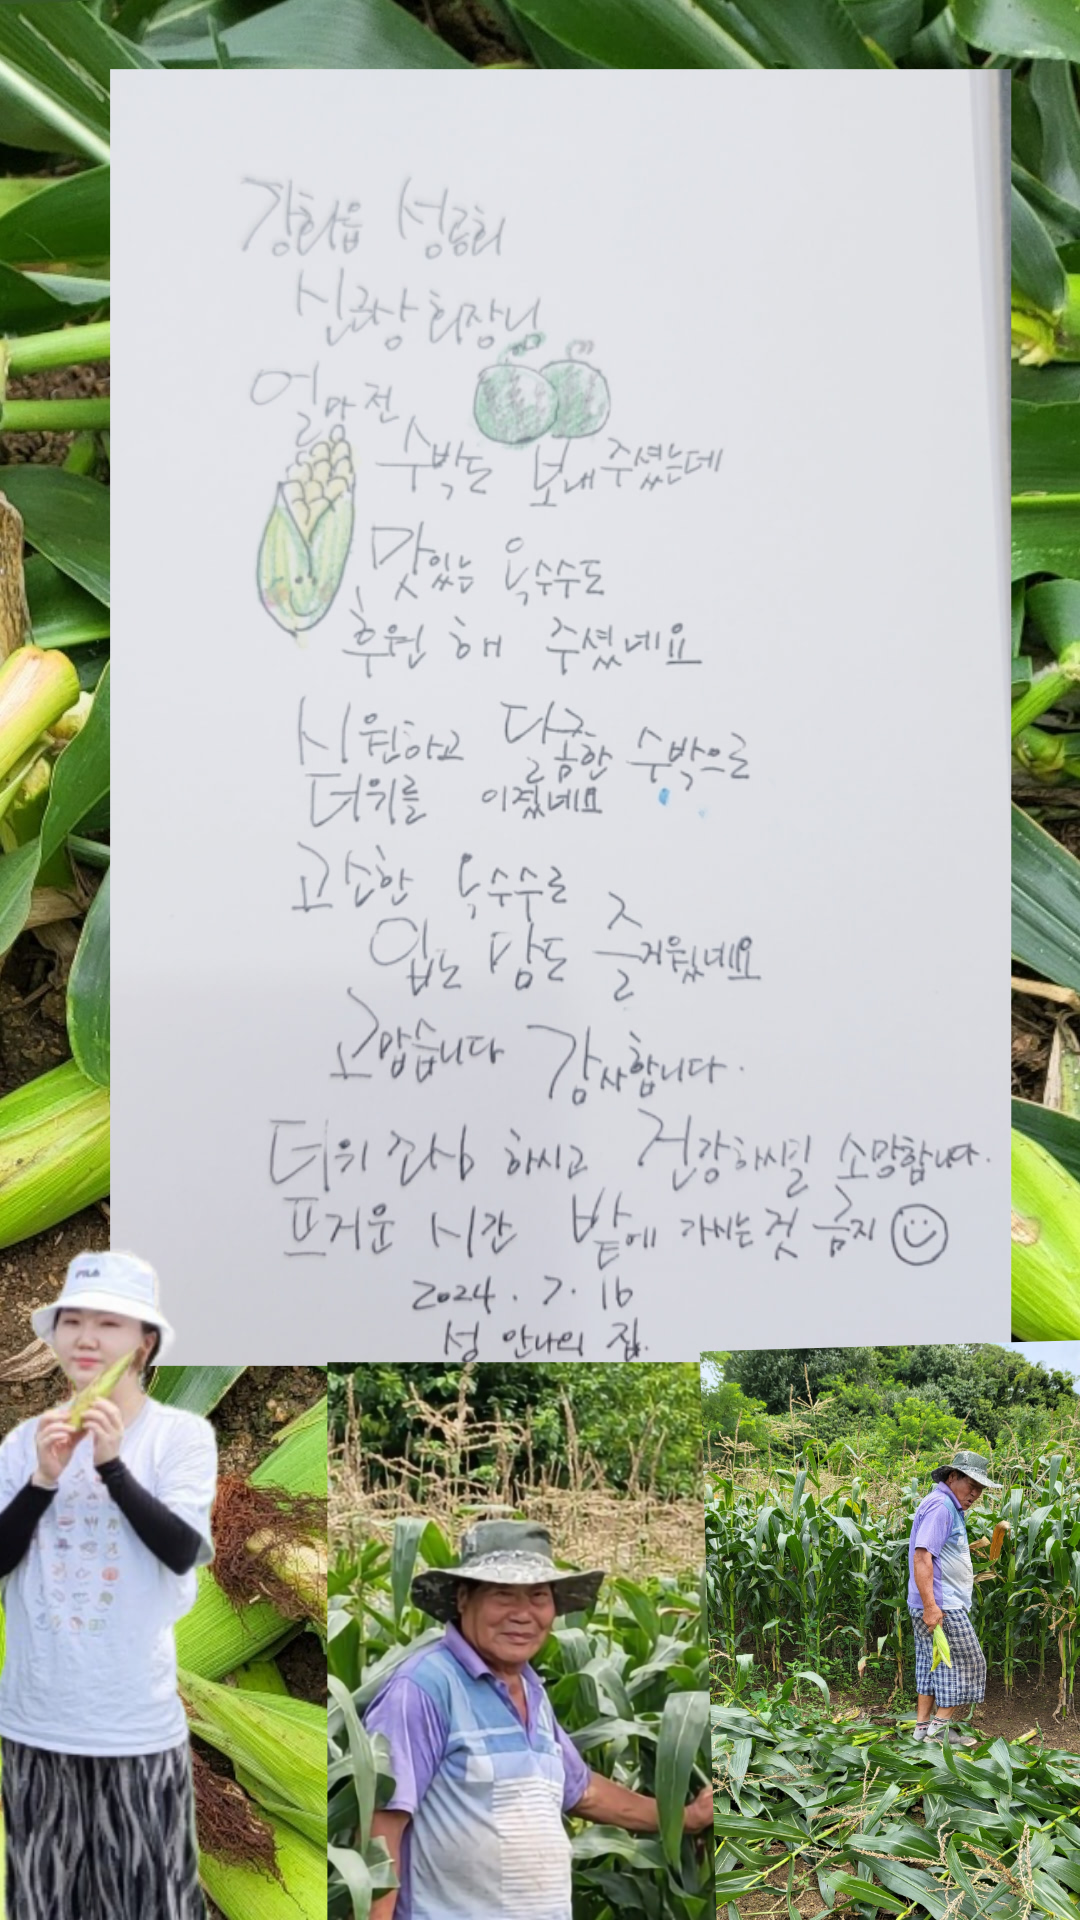 강화읍 성공회
신금상 회장니
얼마 전
수박도 보내 주셨는데
맛있는 옥수수도
후원 해 주셨네요
시원하고 달콤한 수박으로
더위를 이겼네요
고소한 옥수수로
입는 맘도 즐거웠네요
고맙습니다 감사합니다.
더위 조심 하시고 건강하시길 소망합니다.
뜨거운 시간 밭에 가시는 것 금지
2024. 7. 16
성 안나의 집.
FILA